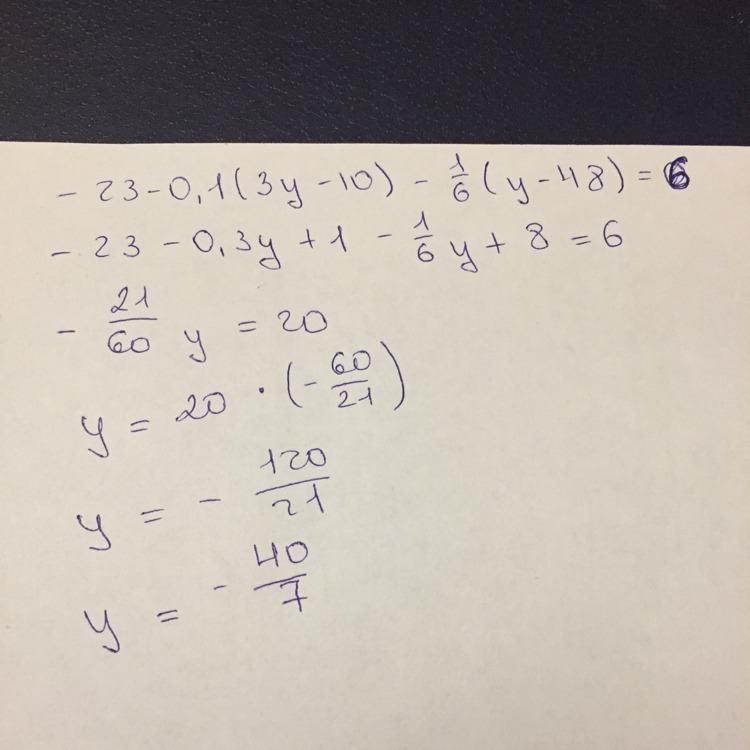 - 23 - 0,1(3y - 10) - 1/6 (y - 48) = 6
- 23 - 0,3y + 1 - 1/6 y + 8 = 6
- 21/60 y = 20
y = 20 · (- 60/21)
y = - 120/21
y = - 40/7